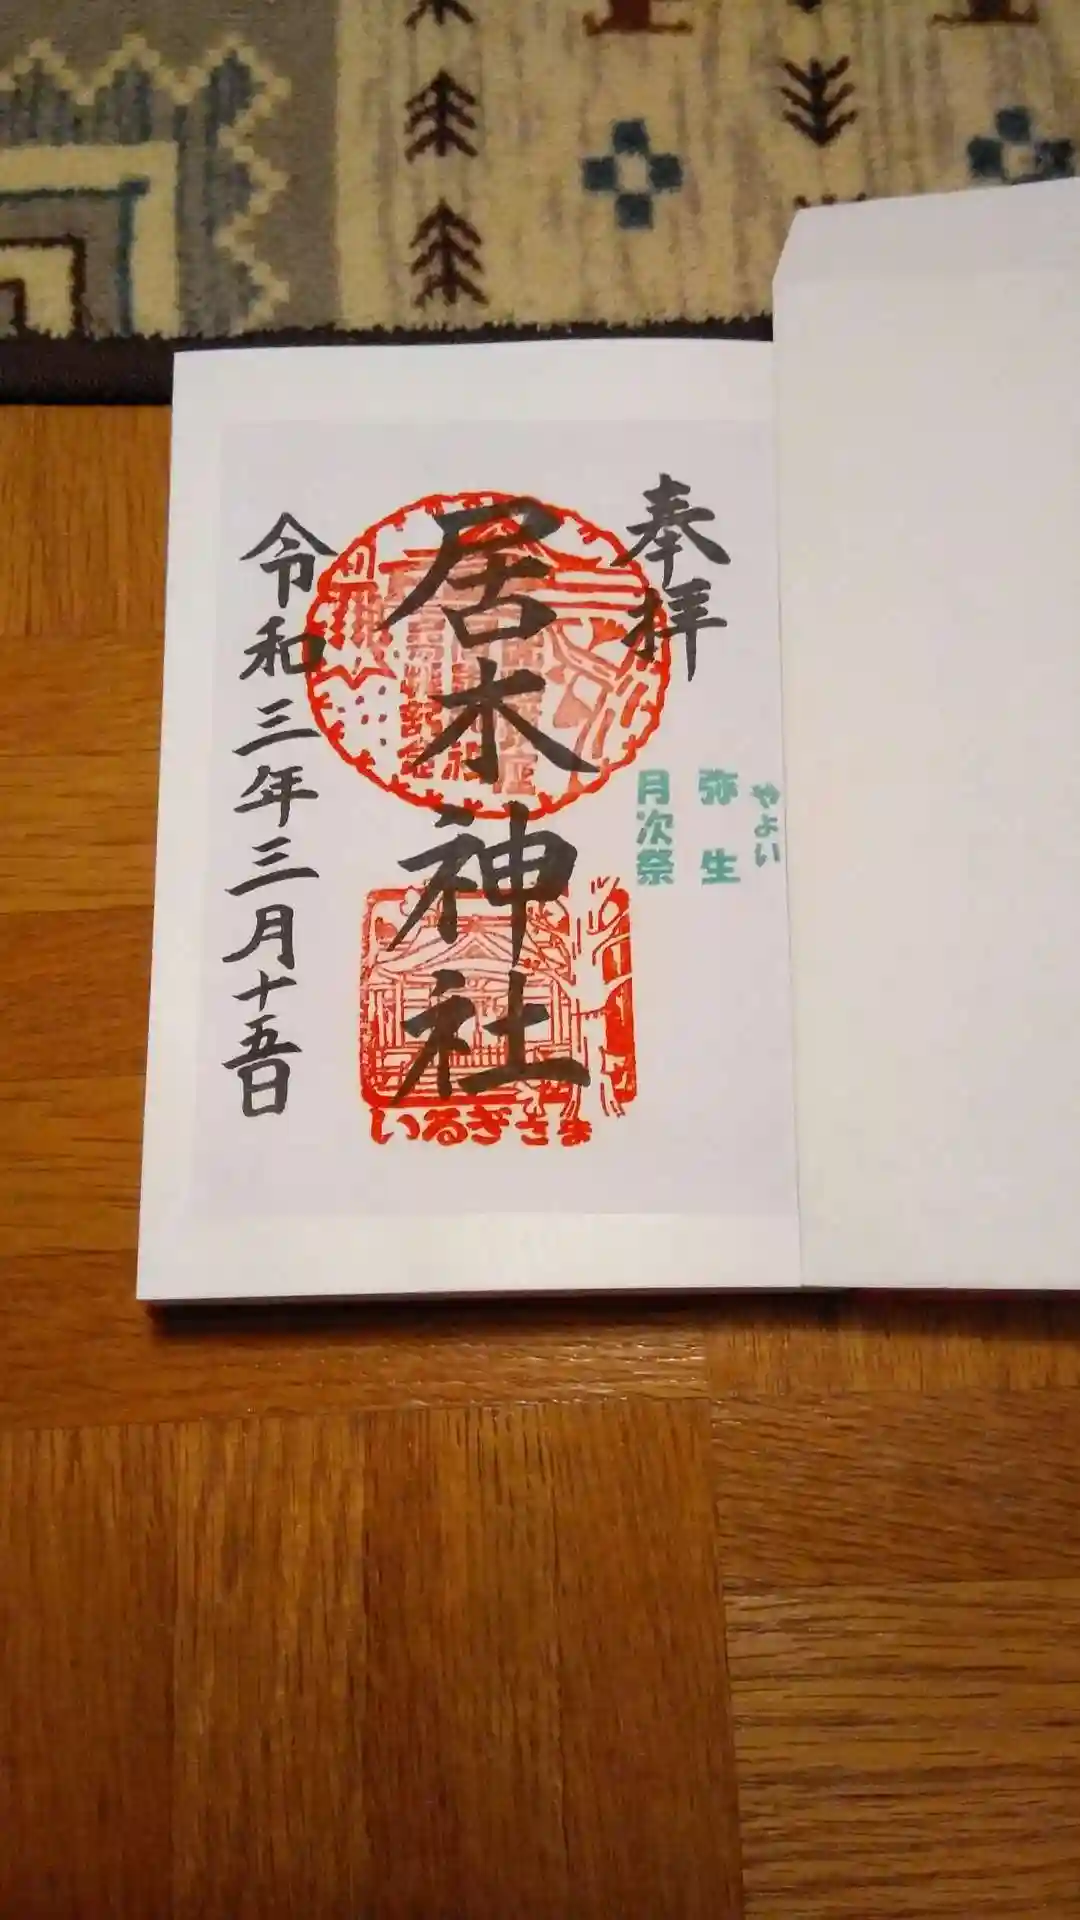 奉拝
やよい
弥生
月次祭
居木神社
いるぎさま
令和三年三月十五日